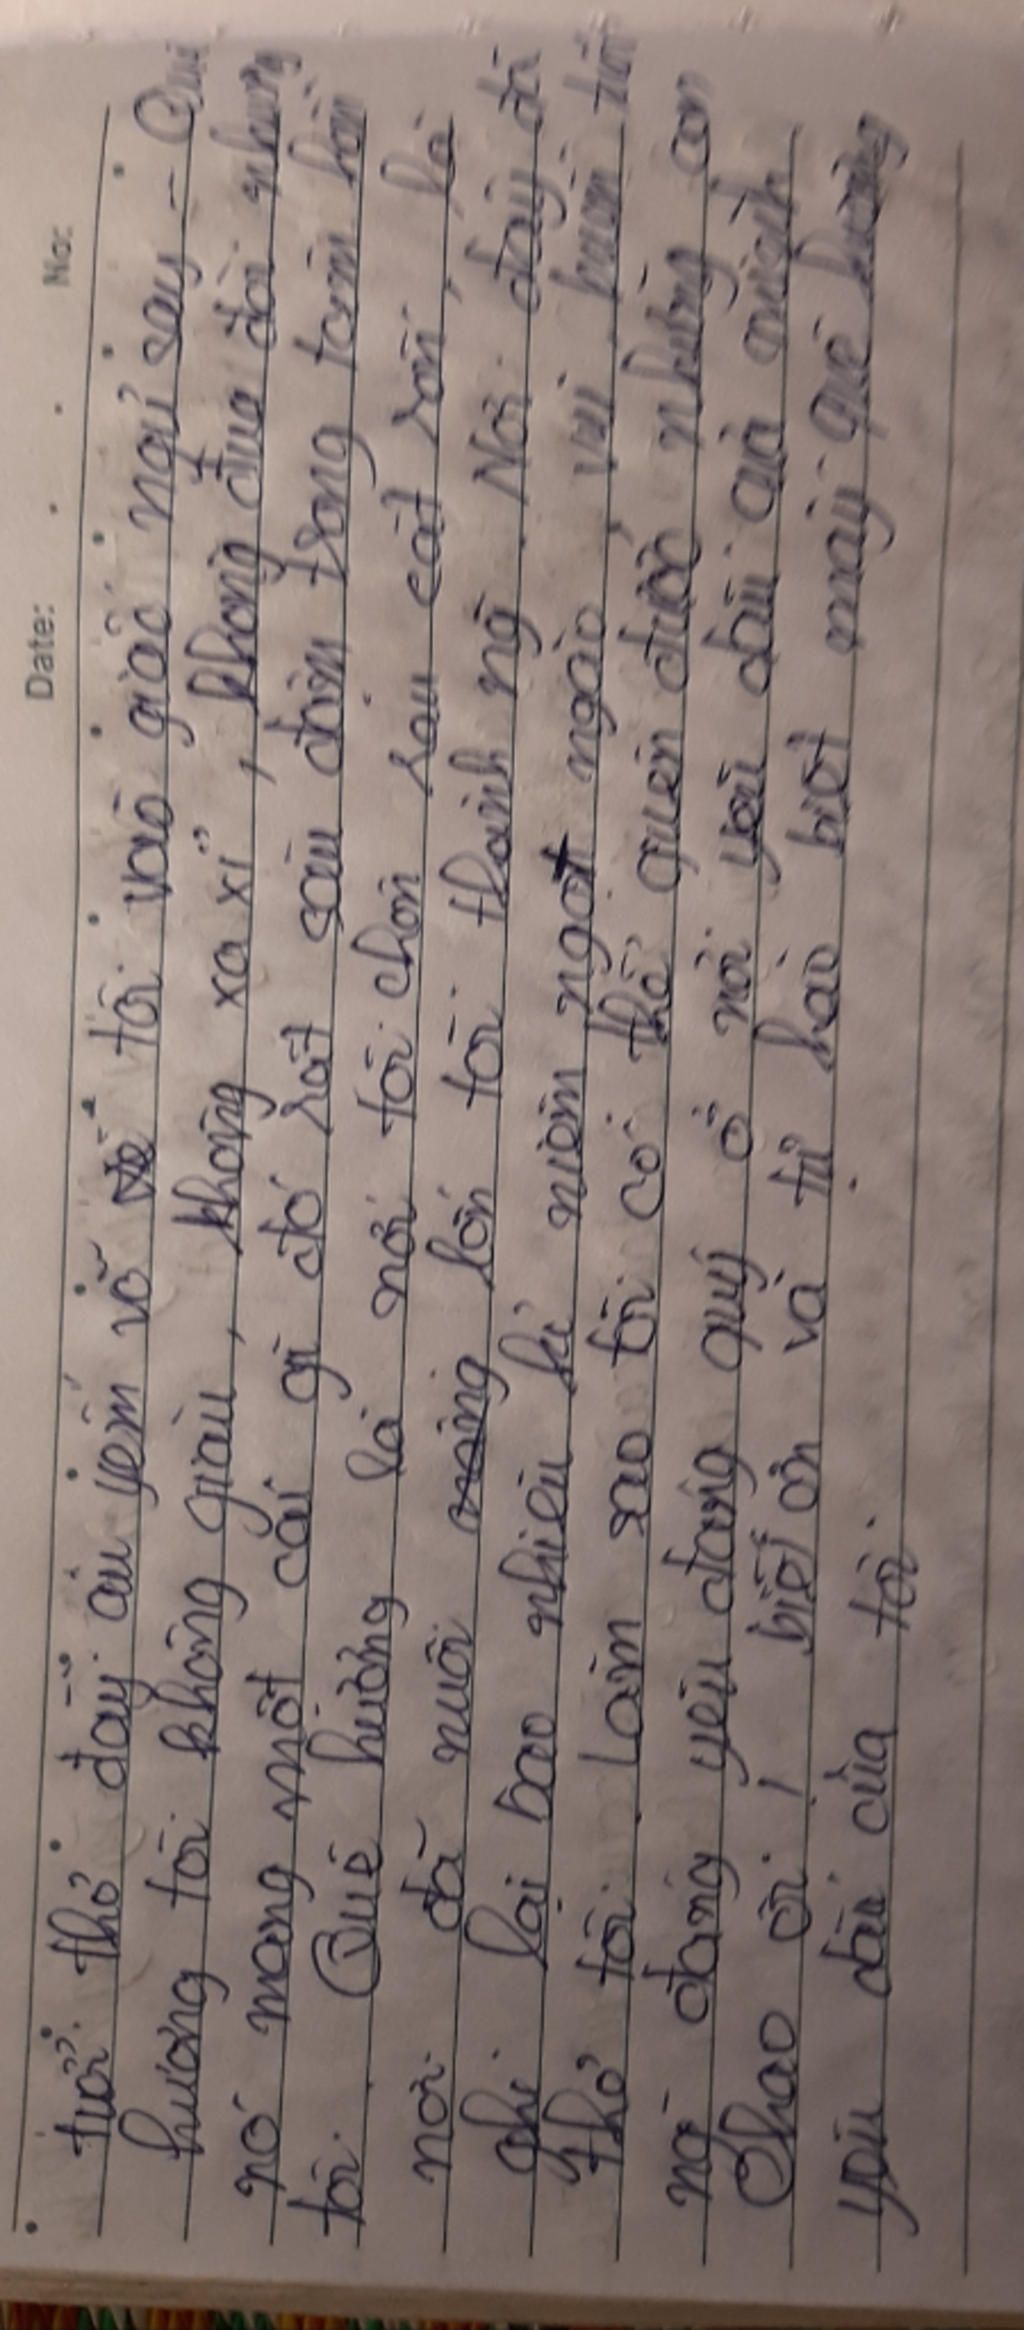 Date: No:
tuổi thơ đầy âu yếm vỗ về tôi vào giấc ngủ say - Quê
hương tôi không giàu, không xa xỉ, không đua đòi nhưng
nó mang một cái gì đó rất sâu đậm trong tâm hồn
tôi. Quê hương là nơi tôi chôn rau cắt rốn, là
nơi đã nuôi nấng lớn tôi thành ng. Nơi đây đã
ghi lại bao nhiêu kỉ niệm ngọt ngào, vui buồn tuổi
thơ tôi. Làm sao tôi có thể quên được những con
ng đáng yêu đáng quý ở nơi yêu dấu quê mình
Ôhao ôi! biết ơn và tự hào biết mấy quê hương
yêu dấu của tôi.